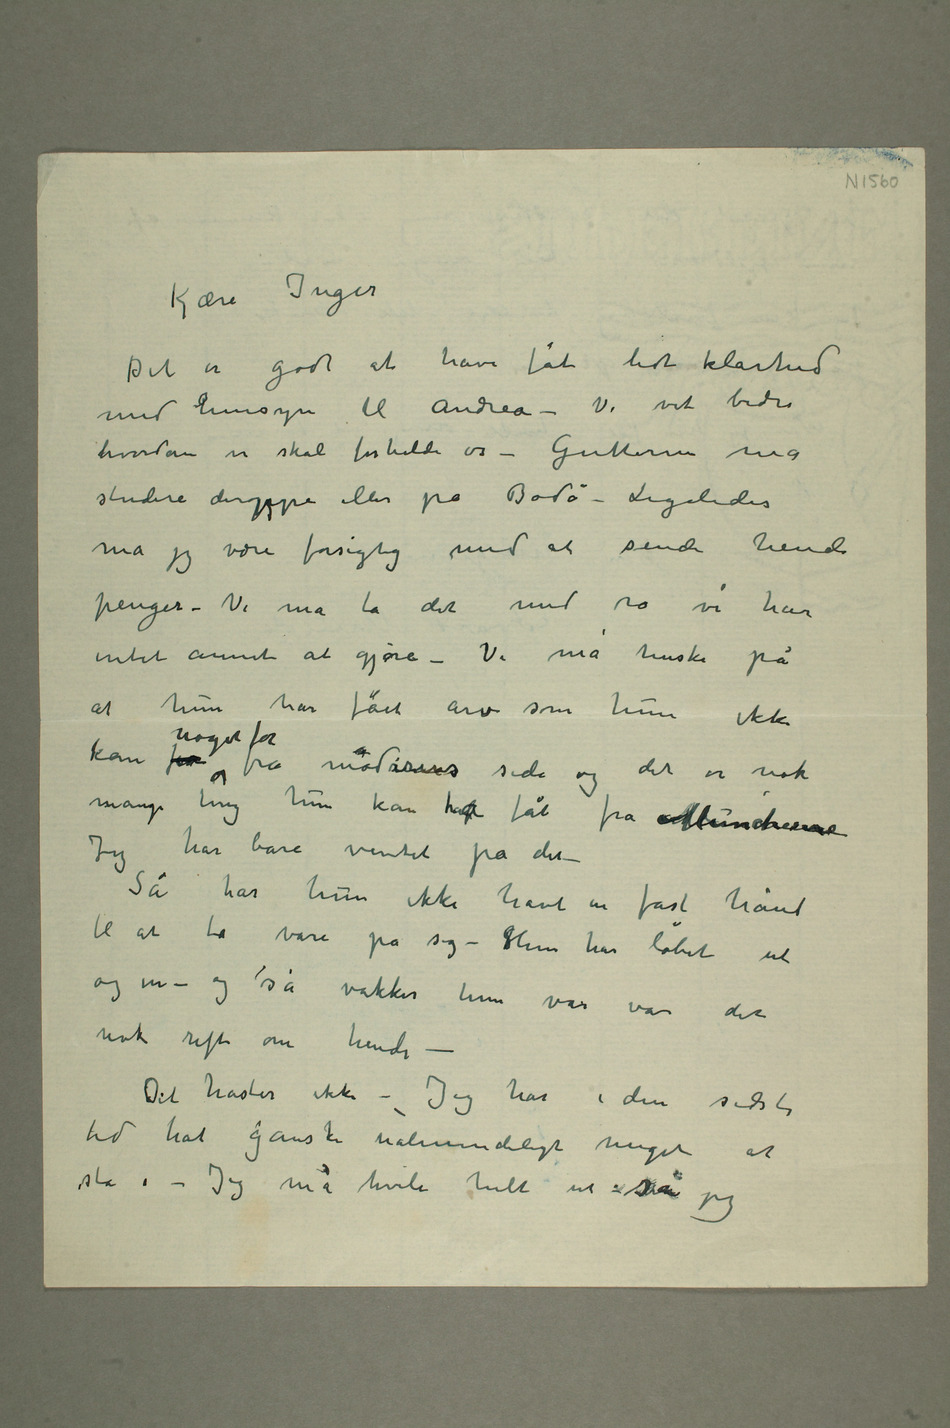 N1560
Kjære Inger
Det er godt at have fåt lidt klarhed
med hensyn til Andrea – Vi vet bedre
hvordan vi skal forholde os – Gutterne må
studere deroppe eller på Bodö – Ligeledes
må jeg være forsigtig med at sende hende
penger – Vi må ta det med ro vi har
intet annet at gjøre – Vi må huske på
at hun har fået arv som hun ikke
noget for
kan for fra moderens side og det er nok
og
mange ting hun kan ha fåt fra Muncherne
Jeg har bare ventet på det –
Så har hun ikke havt en fast hånd
til at ta vare på sig – Hun har løbet ut
og in – og så vakker hun var var det
nok rift om hende –
Det haster ikke – Jeg har i den sidste
tid hat ganske ualmindeligt meget at
stå i – Jeg må hvile helt ut – så jeg